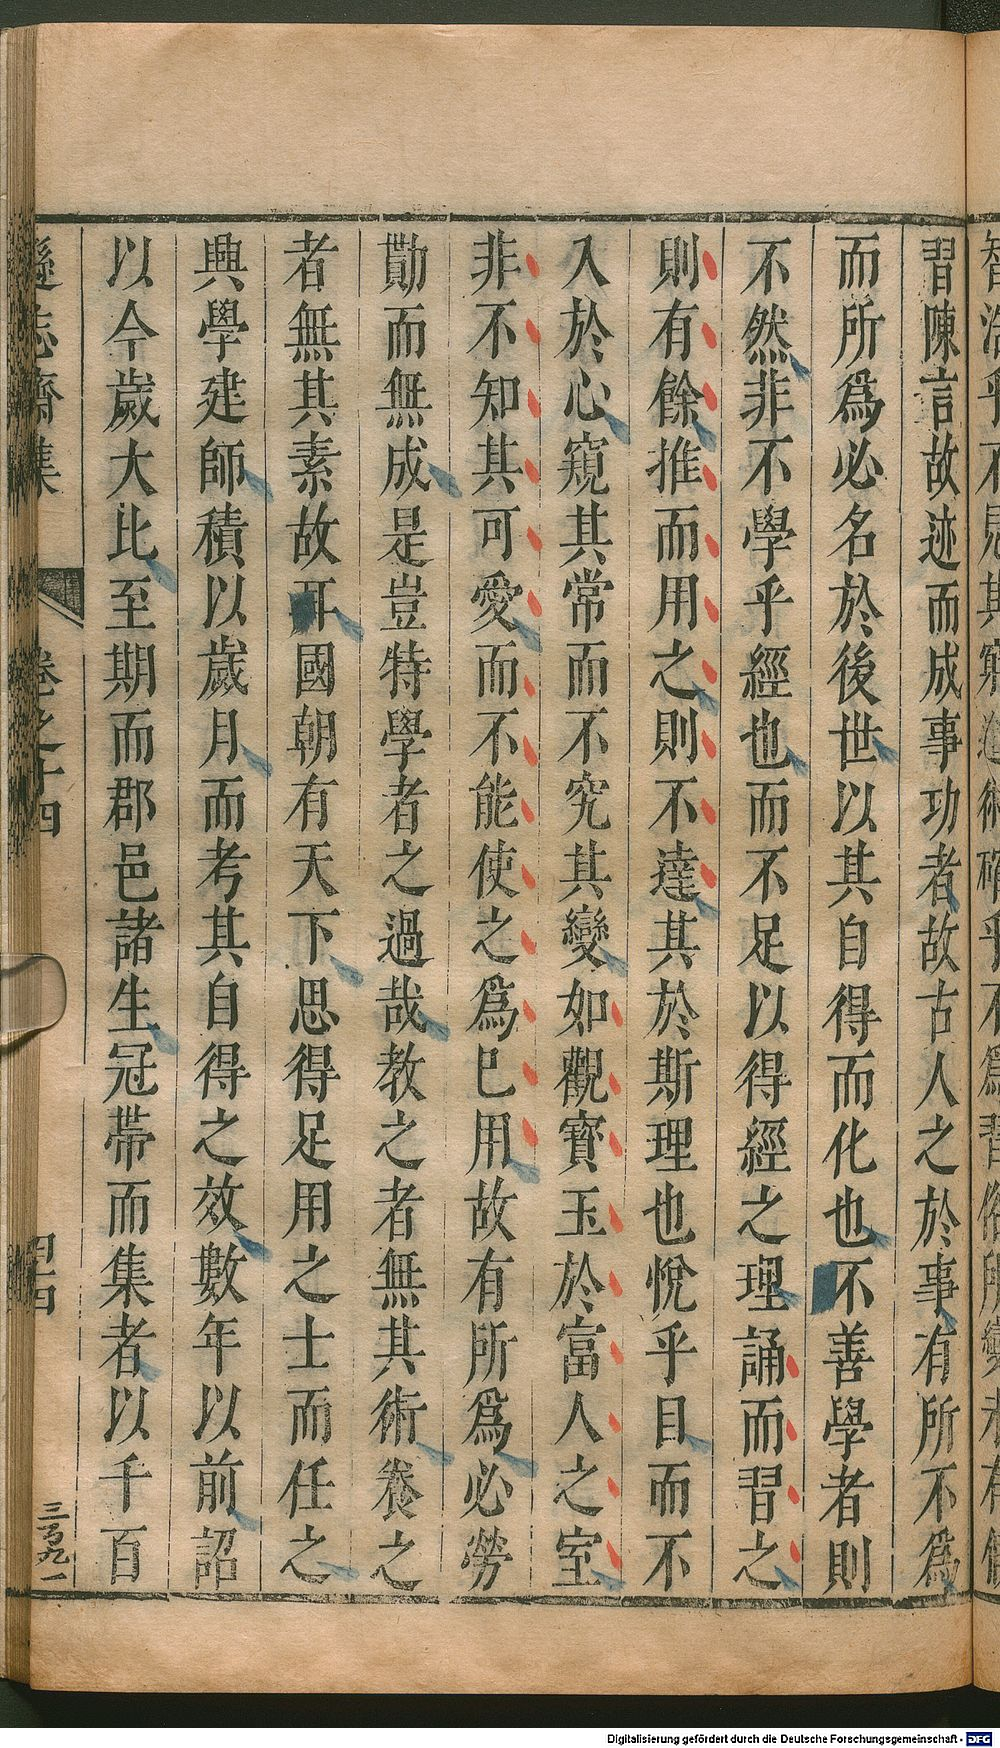 習陳言故迹而成事功者故古人之於事有所不爲
而所爲必名於後世以其自得而化也不善學者則
不然非不學乎經也而不足以得經之理誦而習之
則有餘推而用之則不達其於斯理也悅乎目而不
入於心窺其常而不究其變如觀寳玉於富人之室
非不知其可愛而不能使之爲巳用故有所爲必勞
勩而無成是豈特學者之過哉教之者無其術養之
者無其素故耳國朝有天下思得足用之士而任之
興學建師積以歲月而考其自得之效數年以前詔
以今歲大比至期而郡邑諸生冠帶而集者以千百
遜志齋集 卷之十四
三百九一
Digitalisierung gefördert durch die Deutsche Forschungsgemeinschaft - DFG